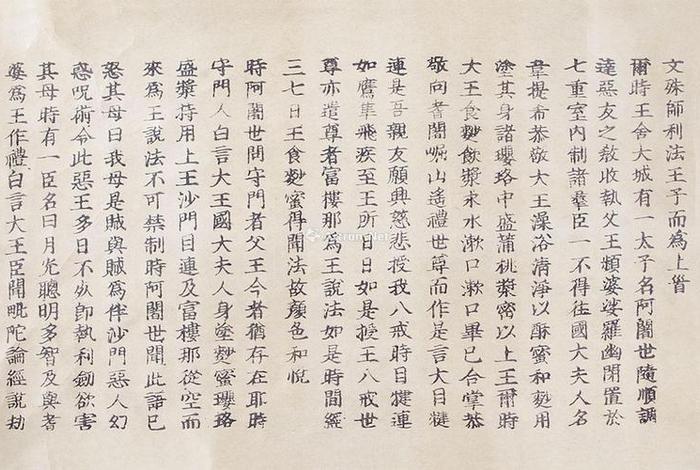 文殊師利法王子而為上首
爾時王舍大城有一太子名阿闍世隨順調
達惡友之教收執父王頻婆娑羅幽閉置於
七重室內制諸羣臣一不得往國大夫人名
韋提希恭敬大王澡浴清淨以酥蜜和麨用
塗其身諸瓔珞中盛蒲桃漿密以上王爾時
大王食麨飲漿求水漱口漱口畢已合掌恭
敬向耆闍崛山遙禮世尊而作是言大目揵
連是吾親友願興慈悲授我八戒時目揵連
如鷹隼飛疾至王所日日如是授王八戒世
尊亦遣尊者富樓那為王說法如是時間經
三七日王食麨蜜得聞法故顏色和悅
時阿闍世問守門者父王今者猶存在耶時
守門人白言大王國大夫人身塗麨蜜瓔珞
盛漿持用上王沙門目連及富樓那從空而
來為王說法不可禁制時阿闍世聞此語已
怒其母曰我母是賊與賊為伴沙門惡人幻
惑呪術令此惡王多日不死即執利劒欲害
其母時有一臣名曰月光聰明多智及與耆
婆為王作禮白言大王臣聞毗陀論經說劫